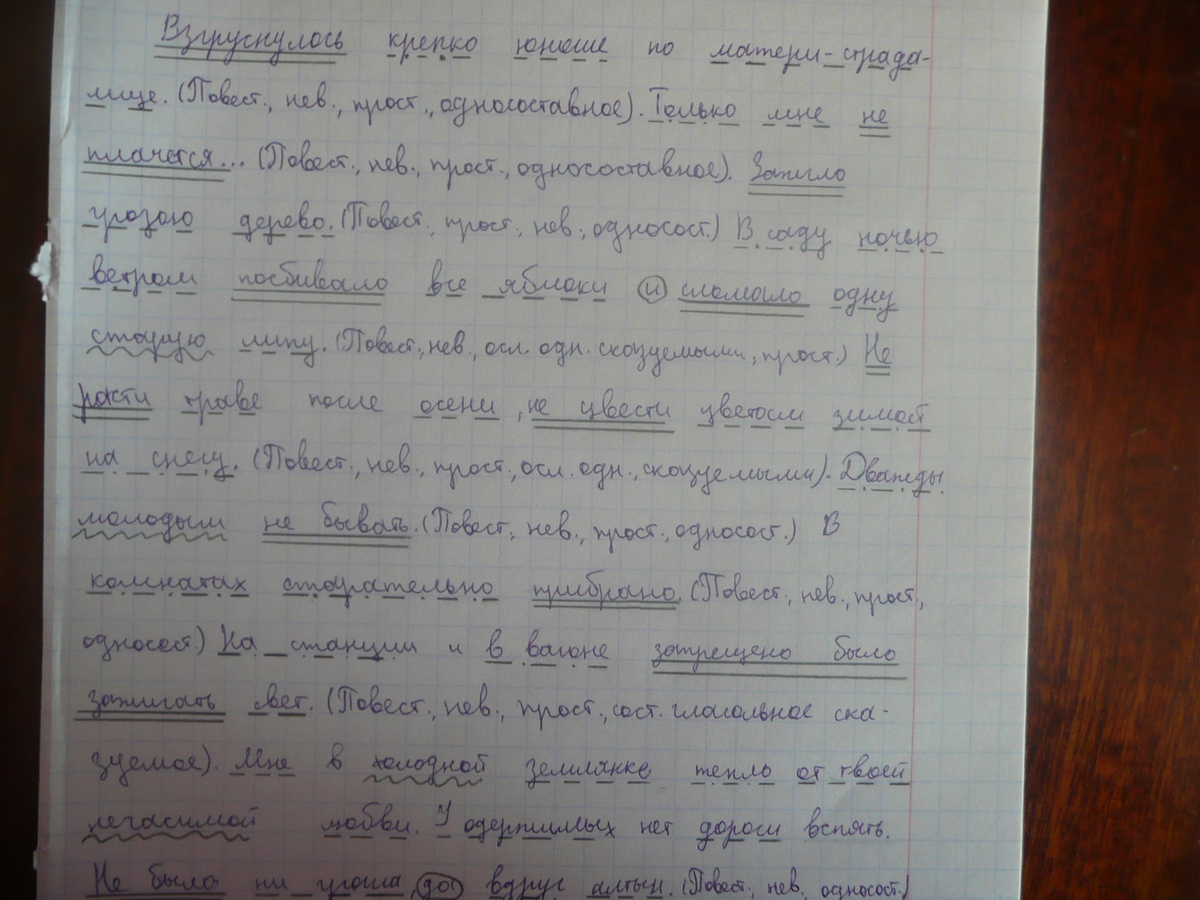 Взгрустнулось крепко юноше по матери-страда-
лице. (Повест., нев., прост., односоставное). Только мне не
плачется... (Повест., нев., прост., односоставное). Зажгло
грозою дерево. (Повест., прост., нев., односост.) В саду ночью
ветром посбивало все яблоки и сломало одну
старую липу. (Повест., нев., осл. одн. сказуемыми, прост.) Не
расти траве после осени, не цвести цветам зимой
на снегу. (Повест., нев., прост., осл. одн., сказуемыми). Дважды
молодым не бывать. (Повест., нев., прост., односост.) В
комнатах старательно прибрано. (Повест., нев., прост.,
односост.) На станции и в вагоне запрещено было
зажигать свет. (Повест., нев., прост., сост. глагольное ска-
зуемое). Мне в холодной землянке тепло от твоей
негасимой любви. У одержимых нет дороги вспять.
Не было ни гроша, да вдруг алтын. (Повест., нев., односост.)